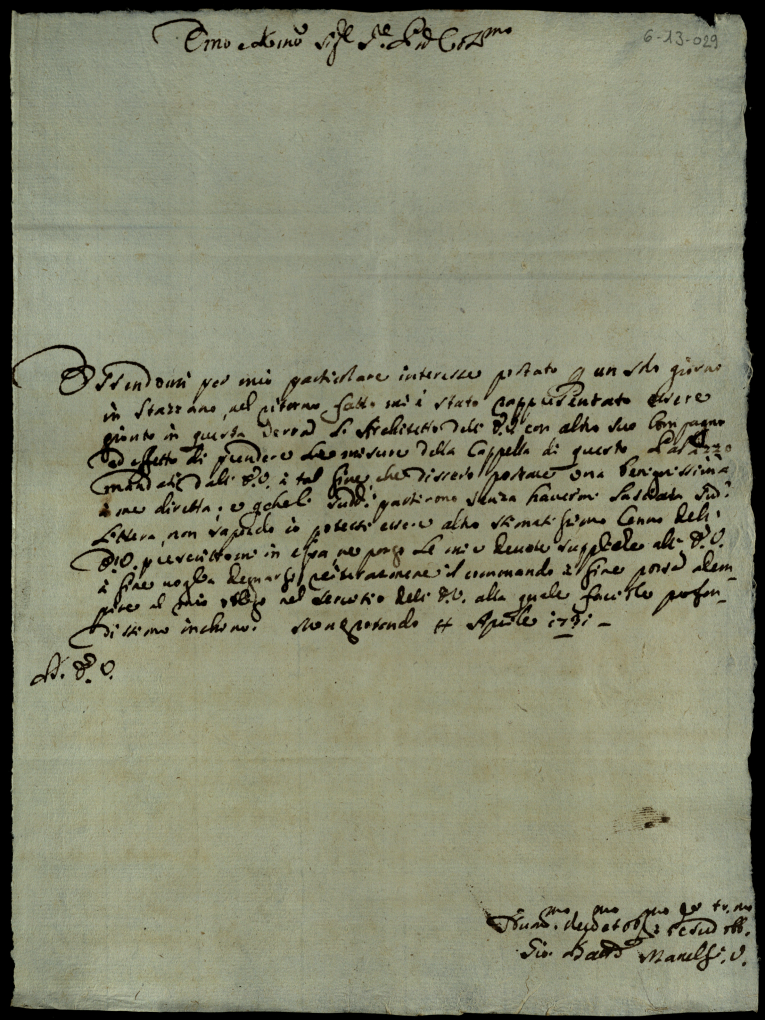 6-13-029
Emo e Rmo Sigr
Essendomi per mio particolare interesse portato p un solo giorno
in Stazzano, nel ritorno fatto mi è stato rappresentato essere
gionto in questa Terra Architetto dell' E.V. con altro suo Compagno
ad effetto di prendere le misure della Cappella di questo Palazzo
mandati dall' E.V. à tal fine, che dissero portare una benignissima
à me diretta, e partirono senza havermi lasciata
Lettera, non sapendo io potesse essere altro stimatissimo Cenno dell'
E.V. in essa, ne porgo le mie devote suppliche all' E.V.
à fine voglia degnarsi il commando à fine possa adem-
pire al mio obligo nel servitio dell' E.V. alla quale faccio profon-
dissimo inchino. Monterotondo Aprile
D. E. V.
Humo devmo et obbmo
Gio. Batta